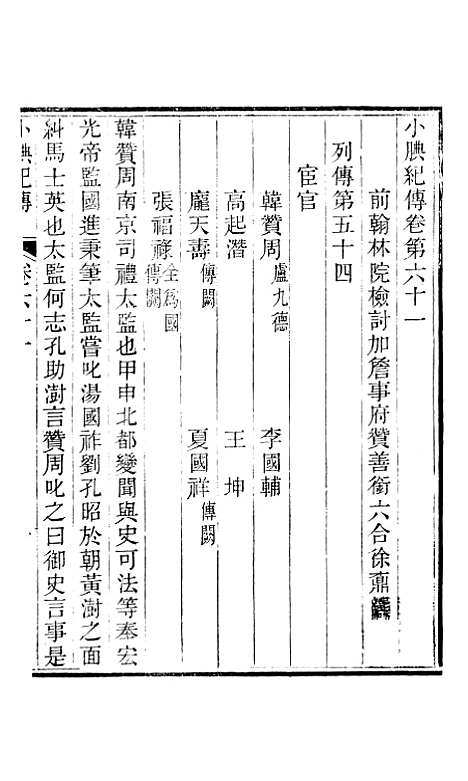 小腆紀傳卷第六十一
前翰林院檢討加詹事府贊善銜六合徐鼒譔
列傳第五十四
宦官
韓贊周 盧九德 李國輔
高起潛 王坤
龐天壽 傳闕 夏國祥 傳闕
張福祿 全爲國 傳闕
韓贊周南京司禮太監也甲申北都變聞與史可法等奉宏
光帝監國進秉筆太監嘗叱湯國祚劉孔昭於朝黃澍之面
糾馬士英也太監何志孔助澍言贊周叱之曰御史言事是
小腆紀傳 卷六十一 一